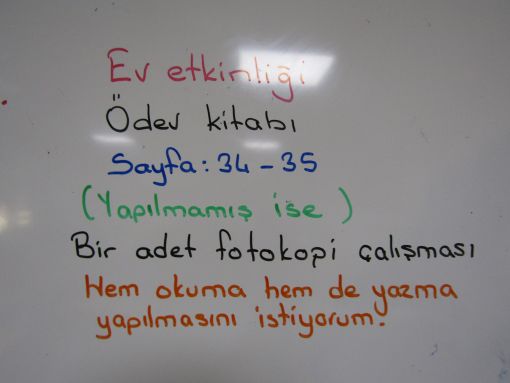 Ev etkinliği
Ödev kitabı
Sayfa: 34 - 35
(Yapılmamış ise )
Bir adet fotokopi çalışması
Hem okuma hem de yazma
yapılmasını istiyorum.